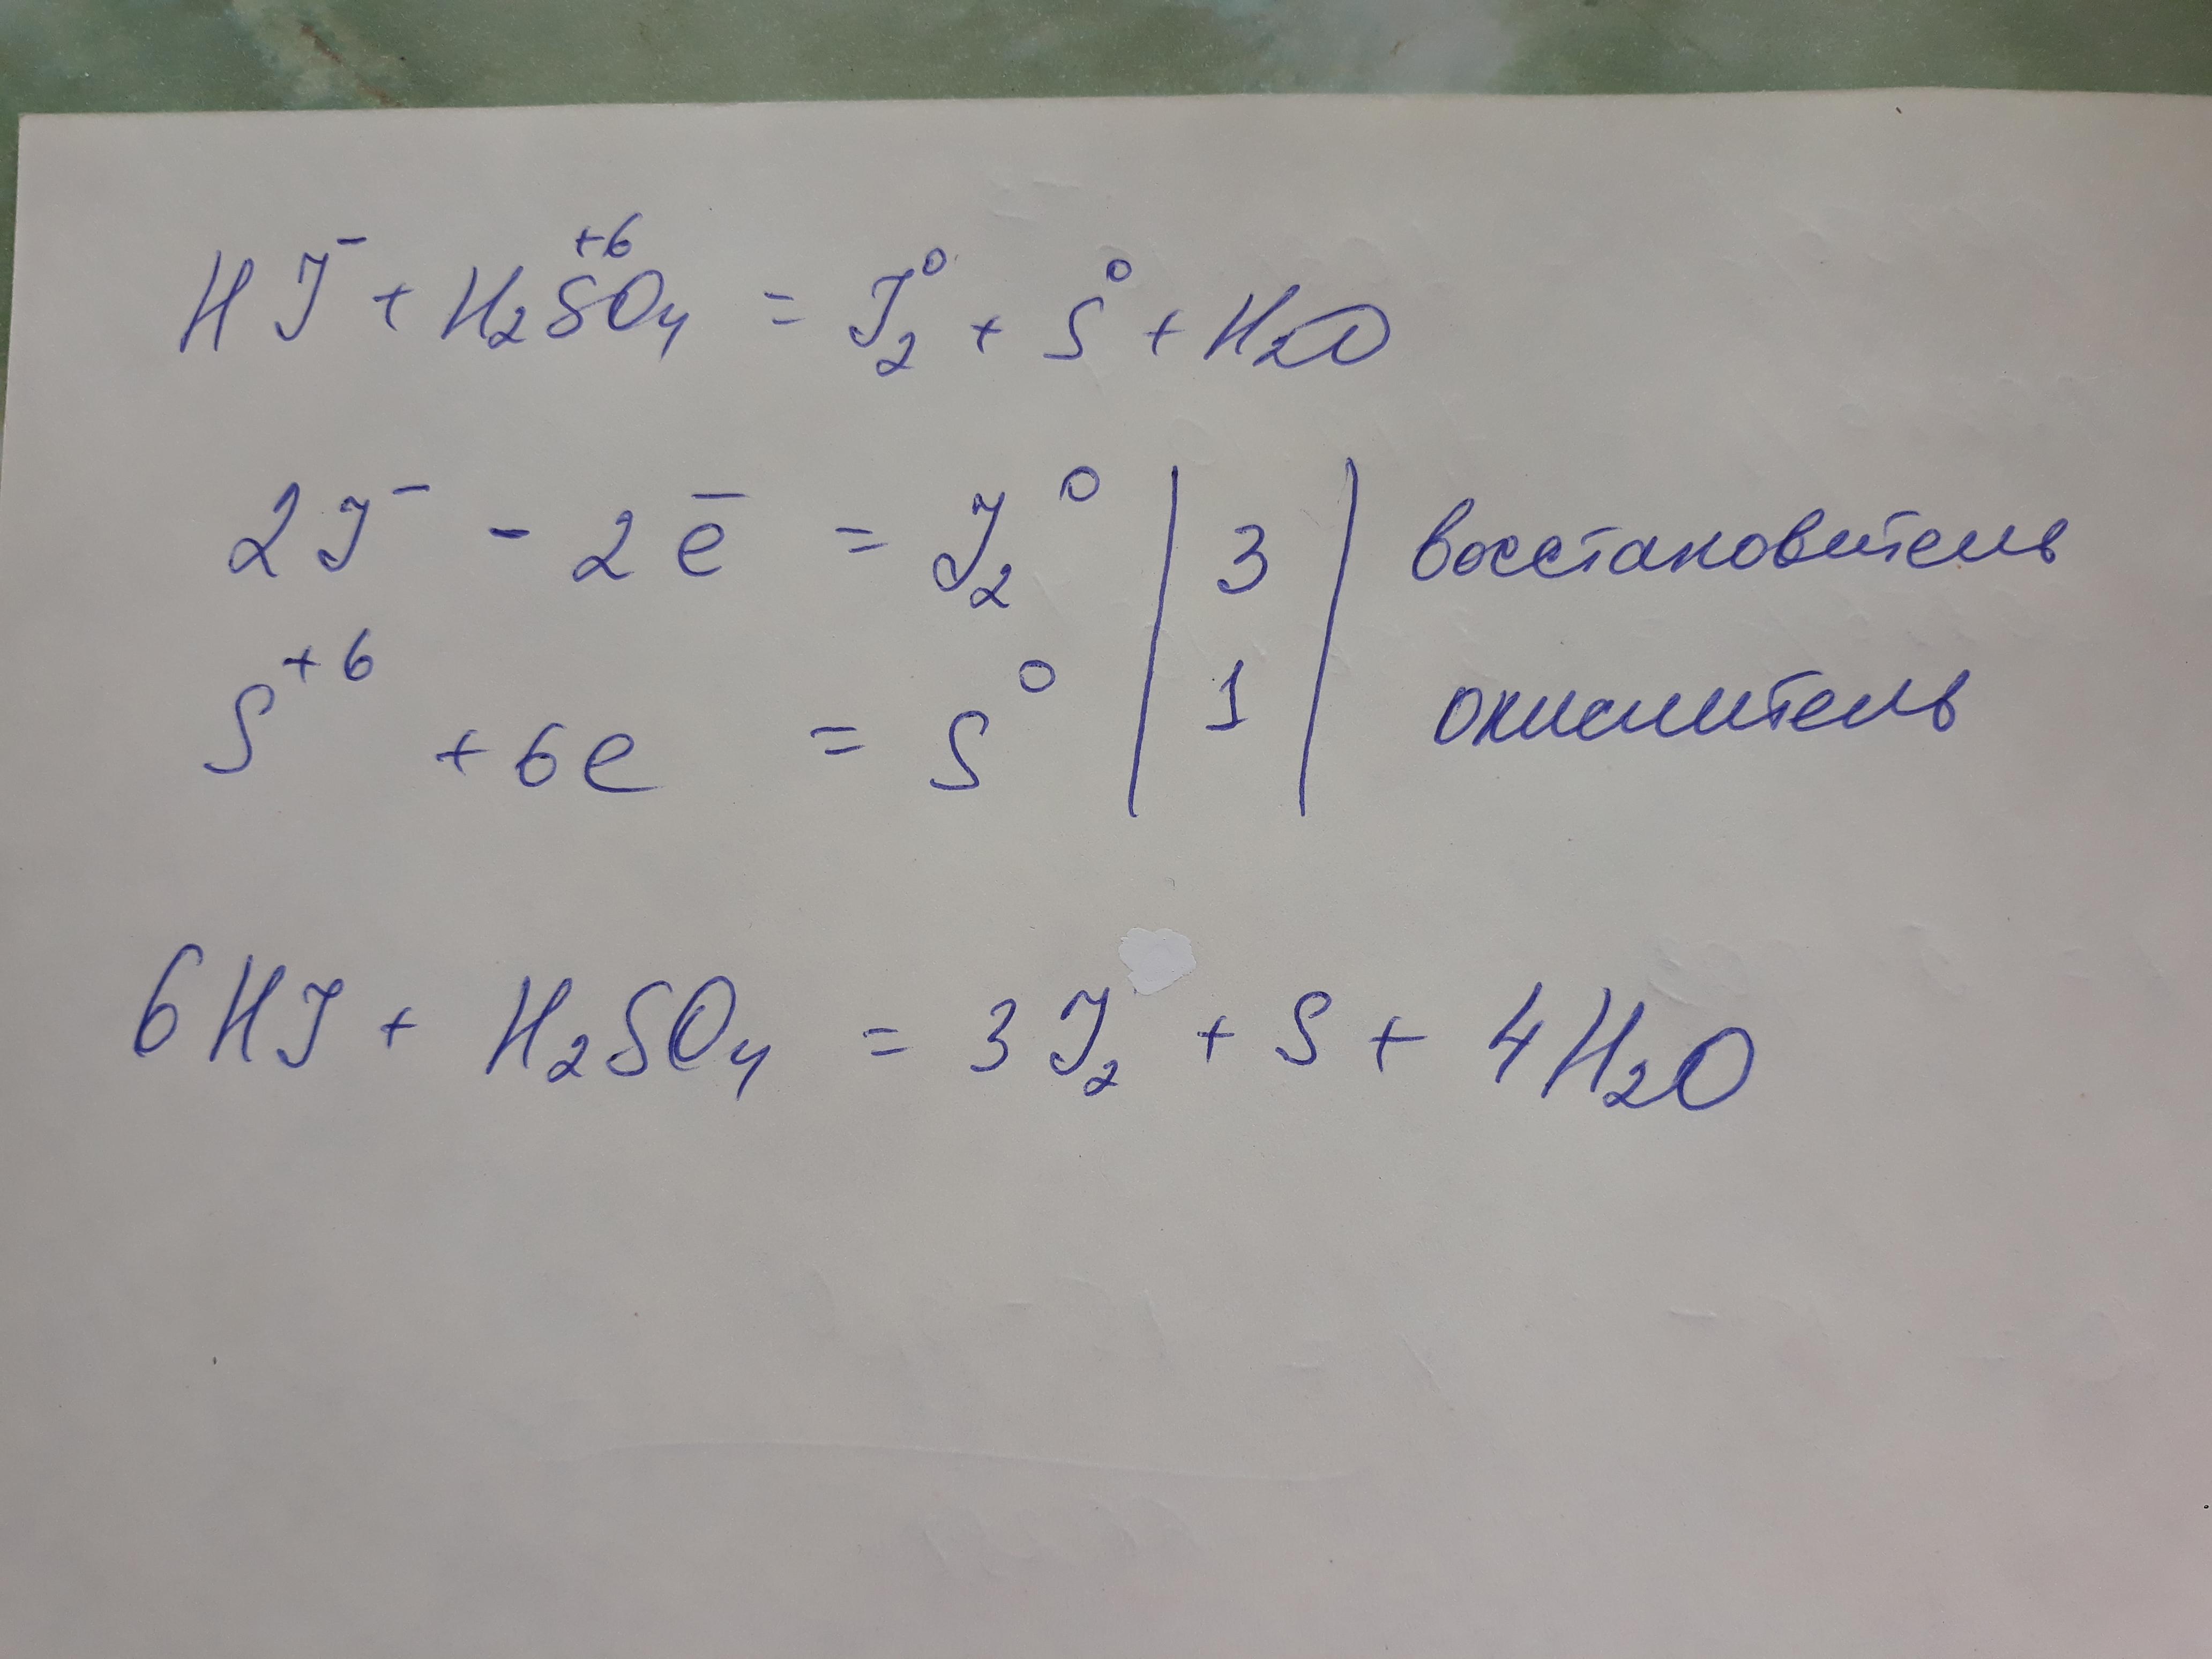 HJ⁻ + H₂S⁺⁶O₄ = J₂⁰ + S⁰ + H₂O
2J⁻ - 2e̅ = J₂⁰ | 3 | восстановитель
S⁺⁶ + 6e = S⁰ | 1 | окислитель
6HJ + H₂SO₄ = 3J₂ + S + 4H₂O